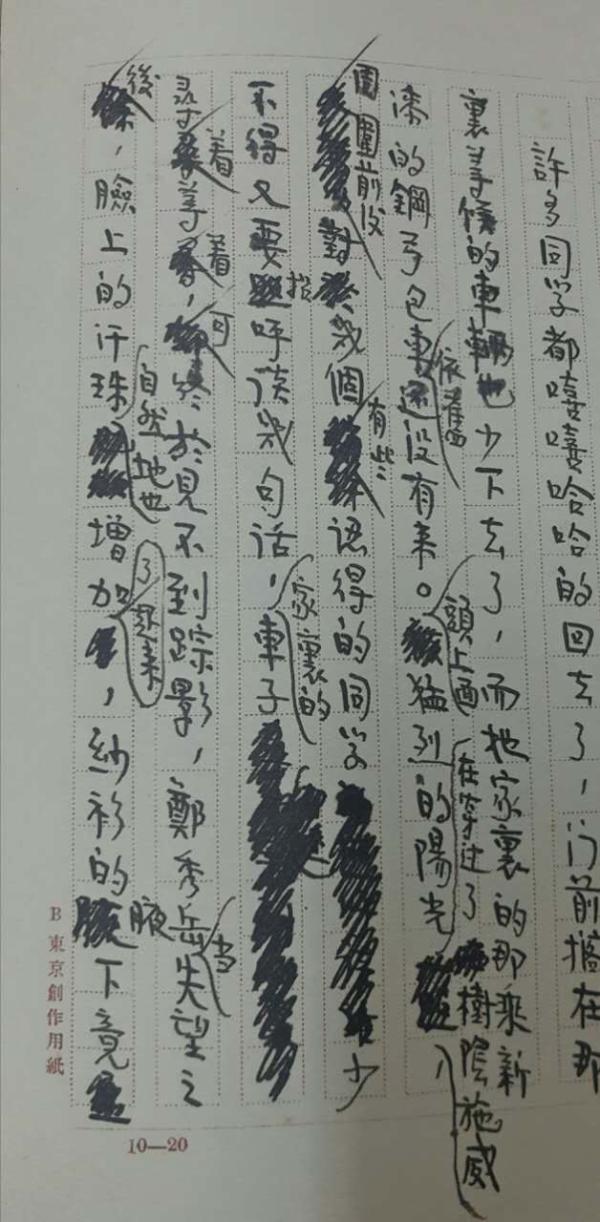 許多同学都嘻嘻哈哈的回去了，门前擱在那
裏等候的車輛也少下去了，而她家裏的那乘新
漆的鋼弓包車依舊還没有来。頭上面猛烈的陽光在穿过了樹陰施威，
周圍前後對幾個有些認得的同学少
不得又要招呼談幾句話，家裏的車子
尋着等着，可終於見不到踪影，鄭秀岳当失望之
後，臉上的汗珠自然地也增加了起来，紗衫的腋下竟
B 東京創作用紙
10—20